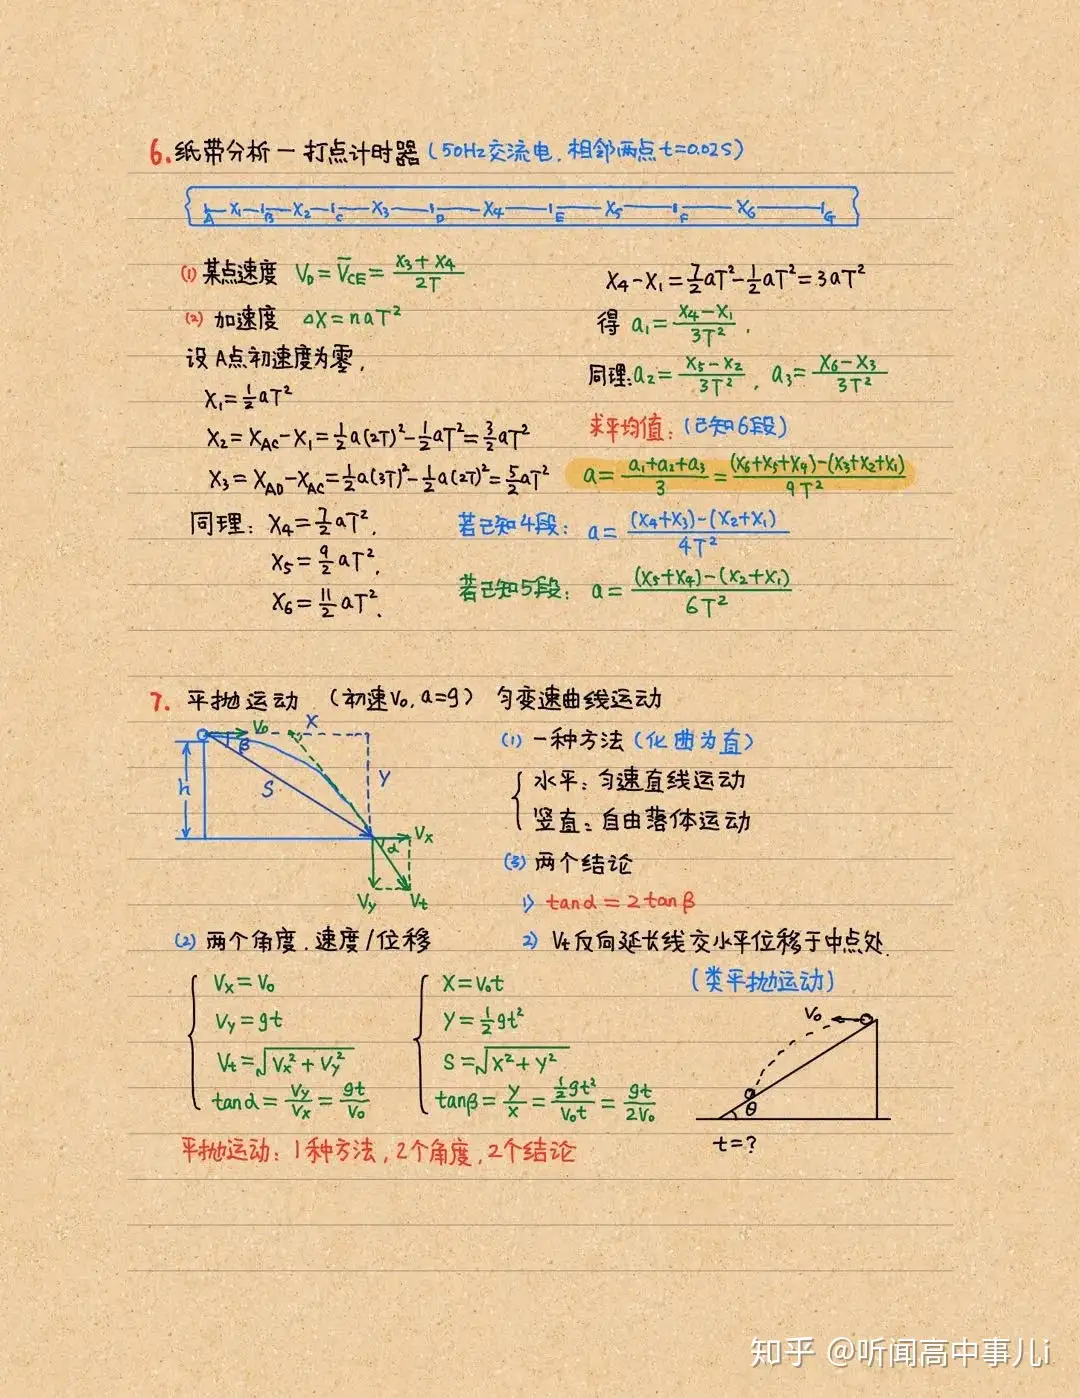 6. 纸带分析 — 打点计时器 (50Hz交流电, 相邻两点 t=0.02s)
A X₁ B X₂ C X₃ D X₄ E X₅ F X₆ G
(1) 某点速度 V_D = V̄_CE = (X₃+X₄)/2T
(2) 加速度 △X = naT²
设 A点初速度为零,
X₁ = ½aT²
X₂ = X_AC - X₁ = ½a(2T)² - ½aT² = 3/2 aT²
X₃ = X_AD - X_AC = ½a(3T)² - ½a(2T)² = 5/2 aT²
同理: X₄ = 7/2 aT²,
X₅ = 9/2 aT²,
X₆ = 11/2 aT².
X₄ - X₁ = 7/2 aT² - ½aT² = 3aT²
得 a₁ = (X₄-X₁)/3T²,
同理: a₂ = (X₅-X₂)/3T², a₃ = (X₆-X₃)/3T²
求平均值: (已知6段)
a = (a₁+a₂+a₃)/3 = ((X₆+X₅+X₄)-(X₃+X₂+X₁))/9T²
若已知4段: a = ((X₄+X₃)-(X₂+X₁))/4T²
若已知5段: a = ((X₅+X₄)-(X₂+X₁))/6T²
7. 平抛运动 (初速V₀, a=g) 匀变速曲线运动
V₀ X
β
h S Y
α Vx
Vy Vt
(1) 一种方法 (化曲为直)
水平: 匀速直线运动
竖直: 自由落体运动
(3) 两个结论
1) tanα = 2tanβ
2) Vt反向延长线交水平位移于中点处.
(2) 两个角度. 速度/位移
Vx = V₀
Vy = gt
Vt = √(Vx²+Vy²)
tanα = Vy/Vx = gt/V₀
X = V₀t
Y = ½gt²
S = √(X²+Y²)
tanβ = Y/X = ½gt²/V₀t = gt/2V₀
(类平抛运动)
V₀
θ
t=?
平抛运动: 1种方法, 2个角度, 2个结论
知乎 @听闻高中事儿i